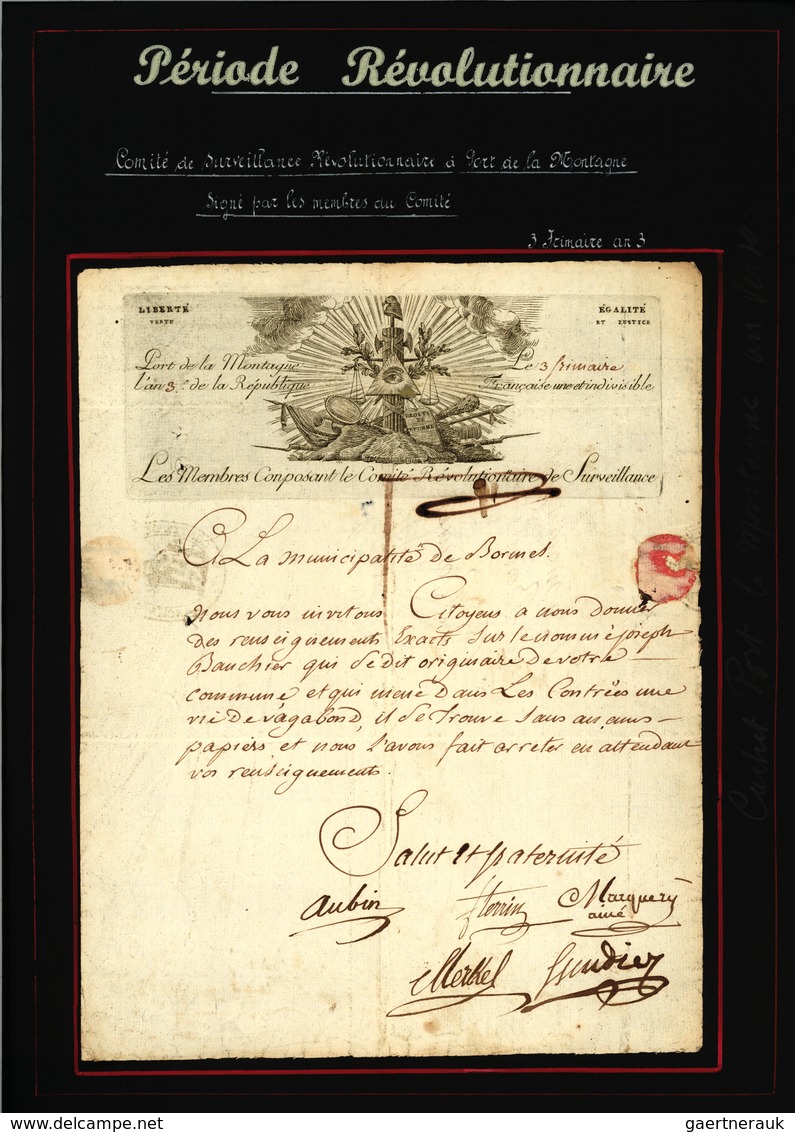 Période Révolutionnaire
Comité de Surveillance Révolutionnaire à Port de la Montagne
Signé par les membres du Comité
3 Frimaire an 3
LIBERTÉ
VERTU
ÉGALITÉ
ET JUSTICE
Port de la Montagne
Le 3 frimaire
l'an 3.e de la République
Française une et indivisible
DROITS DE L'HOMME
Les Membres Conposant le Comité Révolutionnaire de Surveillance
A La municipalité de Bormes.
Nous vous invitons Citoyens a nous donner
des renseignements Exacts sur le nommé joseph
Bauchier qui se dit originaire de votre
commune et qui mene dans Les Contrées une
vie de vagabond, il se trouve sans aucuns
papiers et nous l'avons fait arreter en attendant
vos renseignements.
Salut et fraternité
Aubin
Marquery
ainé
Merkel
Cachet Port la Montagne au verso
delcampe.net
gaertnerauk